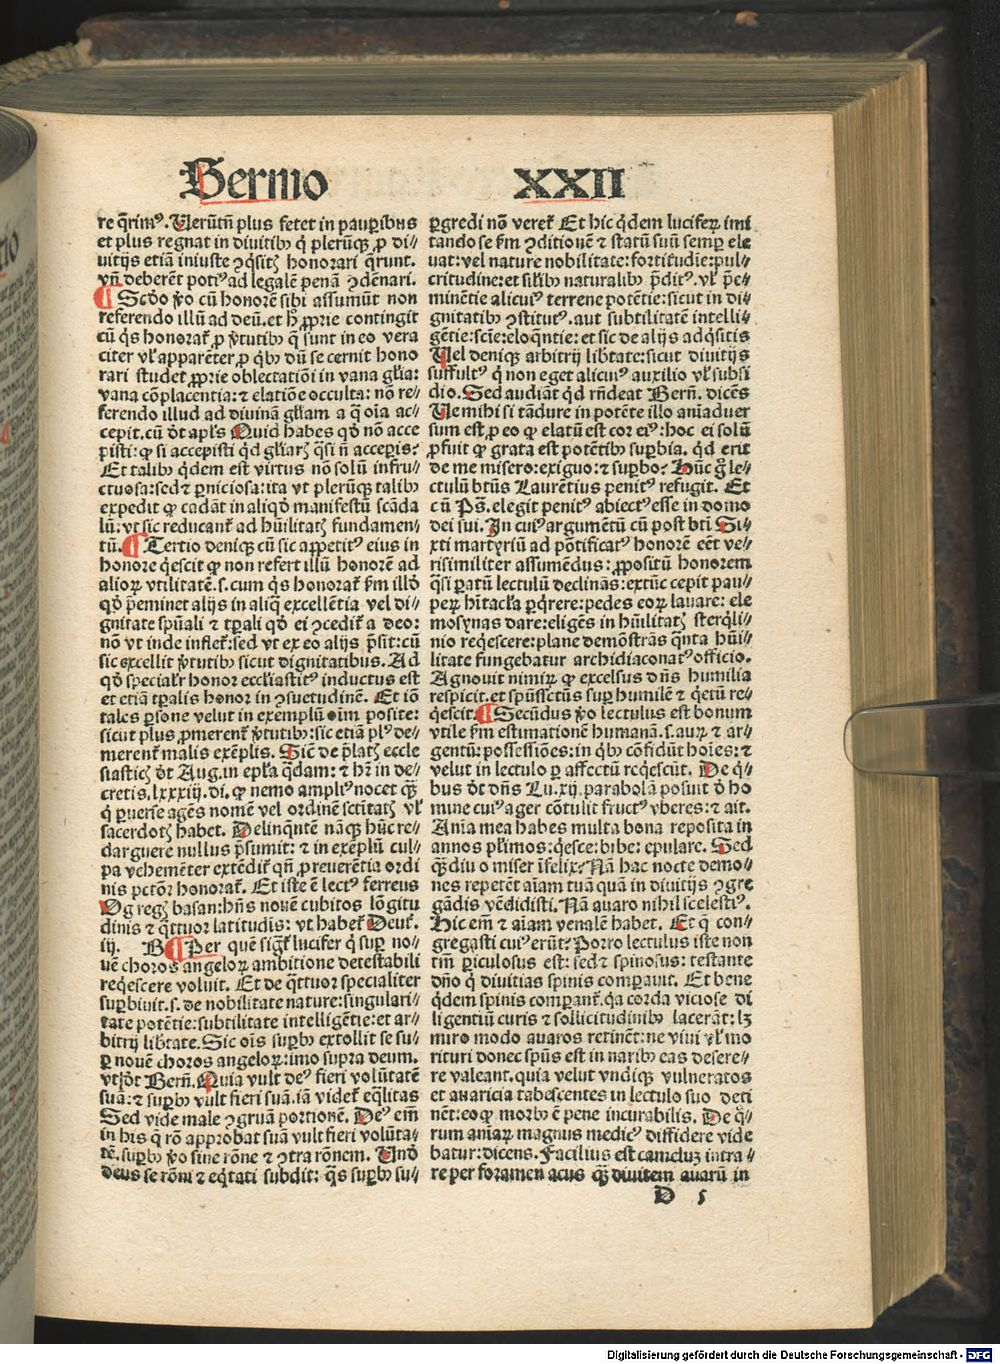 Sermo XXII
re q̄rimꝰ. Uerūtñ plus fetet in pauꝑibus
et plus regnat in diuitibꝫ q̇ pleꝛūqꝫ ꝓ di⸗
uitijs etiā iniuste ꝯq̇sitꝭ honorari q̄runt.
vñ deberēt potiꝰ ad legalē penā ꝯdēnari.
¶ Scḋo ꝟo cū honorē sibi assumūt non
referendo illū ad deū. et h̄ ꝓprie contingit
cū q̇s honorat᷑ ꝓ ꝟtutibꝫ q̄ sunt in eo vera
citer vl̓ apparēter, ꝓ q̇bꝫ dū se cernit hono
rari studet ꝓprie oblectatiōi in vana gl̓ia:
vana cōplacentia: ⁊ elatiōe occulta: nō re⸗
ferendo illud ad diuinā gl̓iam a q̄ oīa ac⸗
cepit. cū ḋt apl̓s Quid habes qḋ nō acce
pisti: ꝙ si accepisti qd gl̓iarꝭ q̄si ñ acceꝑis?
Et talibꝫ q̇dem est virtus nō solū infru⸗
ctuosa: sed ⁊ ꝑniciosa: ita vt pleꝛūqꝫ talibꝫ
expedit ꝙ cadāt in aliqḋ manifestū scāda
lū: vt sic reducant᷑ ad hūilitatꝭ fundamen⸗
tū. ¶ Tertio denicꝫ cū sic appetitꝰ eius in
honore q̇escit ꝙ non refert illū honorē ad
alioꝝ vtilitatē. s. cum q̇s honorat᷑ ẜm illḋ
qḋ p̄eminet alijs in aliq̄ excellētia vel di⸗
gnitate spūali ⁊ tꝑali qḋ ei ꝯcedit᷑ a deo:
nō vt inde inflet᷑: sed vt ex eo alijs ꝓsit: cū
sic excellit ꝟtutibꝫ sicut dignitatibus. Ad
qḋ specialr̓ honor eccl̓iasticꝰ inductus est
et etiā tꝑalis honor in ꝯsuetudinē. Et iō
tales ꝑsone velut in exemplū oīm posite:
sicut plus ꝓmerent᷑ ꝟtutibꝫ: sic etiā plꝰ de⸗
merent᷑ malis exēplis. Sic̄ de p̄latꝭ eccle
siasticꝭ ḋt Aug. in epl̓a q̄dam: ⁊ hr̄ in de⸗
cretis. lxxxiij. di. ꝙ nemo ampliꝰ nocet qꝫ̄
q̇ ꝑuerse agēs nomē vel ordinē sctītatꝭ vl̓
sacerdotꝭ habet. Delinq̄ntē nāqꝫ hūc re⸗
darguere nullus p̄sumit: ⁊ in exēplū cul⸗
pa vehemēter extēdit᷑ qñ ꝓ reuerētia ordi
nis pctōr honorat᷑. Et iste ē lectꝰ ferreus
Og regꝭ basan: hñs nouē cubitos lōgitu
dinis ⁊ q̄ttuor latitudīs: vt habet᷑ Deut᷑.
iij. B ¶ Per quē sigᷓt᷑ lucifer q̇ suꝑ no⸗
uē choros angeloꝝ ambitione detestabili
req̇escere voluit. Et de q̄ttuor specialiter
suꝑbiuit. s. de nobilitate nature: singulari⸗
tate potētie: subtilitate intelligētie: et ar⸗
bitrij lib̓tate. Sic oīs suꝑbꝰ extollit se su⸗
ꝑ nouē choros angeloꝝ: imo supra deum.
vt ḋt Bern̄. Quia vult deꝰ fieri volūtatē
suā: ⁊ suꝑbꝰ vult fieri suā. iā videt᷑ eq̄litas
Sed vide male ꝯgruā portionē. Deꝰ em̄
in his q̄ rō approbat suā vult fieri volūta⸗
tē. suꝑbꝰ ꝟo sine rōne ⁊ ꝯtra rōnem. Unḋ
deus se rōni ⁊ eq̇tati subdit: q̇s suꝑbꝰ su⸗
ꝑgredi nō veret᷑ Et hic q̇dem luciferꝝ imi
tando se ẜm ꝯditionē ⁊ statū suū semꝑ ele
uat: vel nature nobilitate: fortitudie: pul⸗
critudine: et sil̓ibꝫ naturalibꝫ p̄ditꝰ. vl̓ p̄e⸗
minētie alicuiꝰ terrene potētie: sicut in di⸗
gnitatibꝫ ꝯstitutꝰ. aut subtilitatē intelli⸗
gētie: sciē: eloq̄ntie: et sic de alijs adq̇sitis
Uel denicꝫ arbitrij lib̓tate: sicut diuitijs
suffultꝰ q̇ non eget alicuiꝰ auxilio vl̓ subsi
dio. Sed audiāt qd rñdeat Bern̄. dicēs
Ue mihi si tādure in potēte illo aīaduer
sum est, ꝓ eo ꝙ elatū est cor eiꝰ: hoc ei solū
ꝓfuit ꝙ grata est potētibꝫ suꝑbia. qd erit
de me misero: exiguo: ⁊ suꝑbo? Hūc g̊ le⸗
ctulū btūs Laurētius penitꝰ refugit. Et
cū Ps̄. elegit penitꝰ abiectꝰ esse in domo
dei sui. In cuiꝰ argumētū cū post btī Si⸗
xti martyriū ad pōtificatꝰ honorē eēt ve⸗
risimiliter assumēdus: ꝓpositū honorem
q̄si ꝑatū lectulū declinās: extūc cepit pau⸗
peꝝ hītacl̓a ꝑq̄rere: pedes eoꝝ lauare: ele
mosynas dare: eligēs in hūilitatꝭ sterq̇li⸗
nio req̇escere: plane demōstrās q̄nta hūi⸗
litate fungebatur archidiaconatꝰ officio.
Agnouit nimiꝝ ꝙ excelsus dn̄s humilia
respicit. et spūssctūs suꝑ humilē ⁊ q̇etū re⸗
q̇escit. ¶ Secūdus ꝟo lectulus est bonum
vtile ẜm estimationē humanā. s. auꝝ ⁊ ar⸗
gentū: possessiōes: in q̇bꝫ cōfidūt hoīes: ⁊
velut in lectulo ꝑ affectū req̇escūt. De q̇⸗
bus ḋt dn̄s Lu. xij. parabolā posuit ḋ ho
mine cuiꝰ ager cōtulit fructꝰ vberes: ⁊ ait.
Anīa mea habes multa bona reposita in
annos pl̓imos: q̇esce: bibe: epulare. Sed
qꝫ̄diu o miser īfelix? Nā hac nocte demo⸗
nes repetēt aīam tuā quā in diuitijs ꝯgre
gādis vēdidisti. Nā auaro nihil scelestiꝰ.
Hic em̄ ⁊ aīam venalē habet. Et q̄ con⸗
gregasti cuiꝰ erūt? Porro lectulus iste non
tm̄ ꝑiculosus est: sed ⁊ spinosus: testante
dn̄o q̇ diuitias spinis comꝑauit. Et bene
q̇dem spinis comꝑant᷑. qa corda viciose di
ligentiū curis ⁊ sollicitudinibꝫ lacerāt: lꝫ
miro modo auaros retinēt: ne viui vl̓ mo
rituri donec spūs est in naribꝫ eas desere⸗
re valeant. quia velut vndiqꝫ vulneratos
et auaricia tabescentes in lectulo suo deti
nēt: eo ꝙ morbꝰ ē pene incurabilis. De q̇⸗
rum anīaꝝ magnus medicꝰ diffidere vide
batur: dicens. Facilius est cameluꝫ intra⸗
re per foramen acus qꝫ̄ diuitem auarū in
D 5
Digitalisierung gefördert durch die Deutsche Forschungsgemeinschaft - DFG